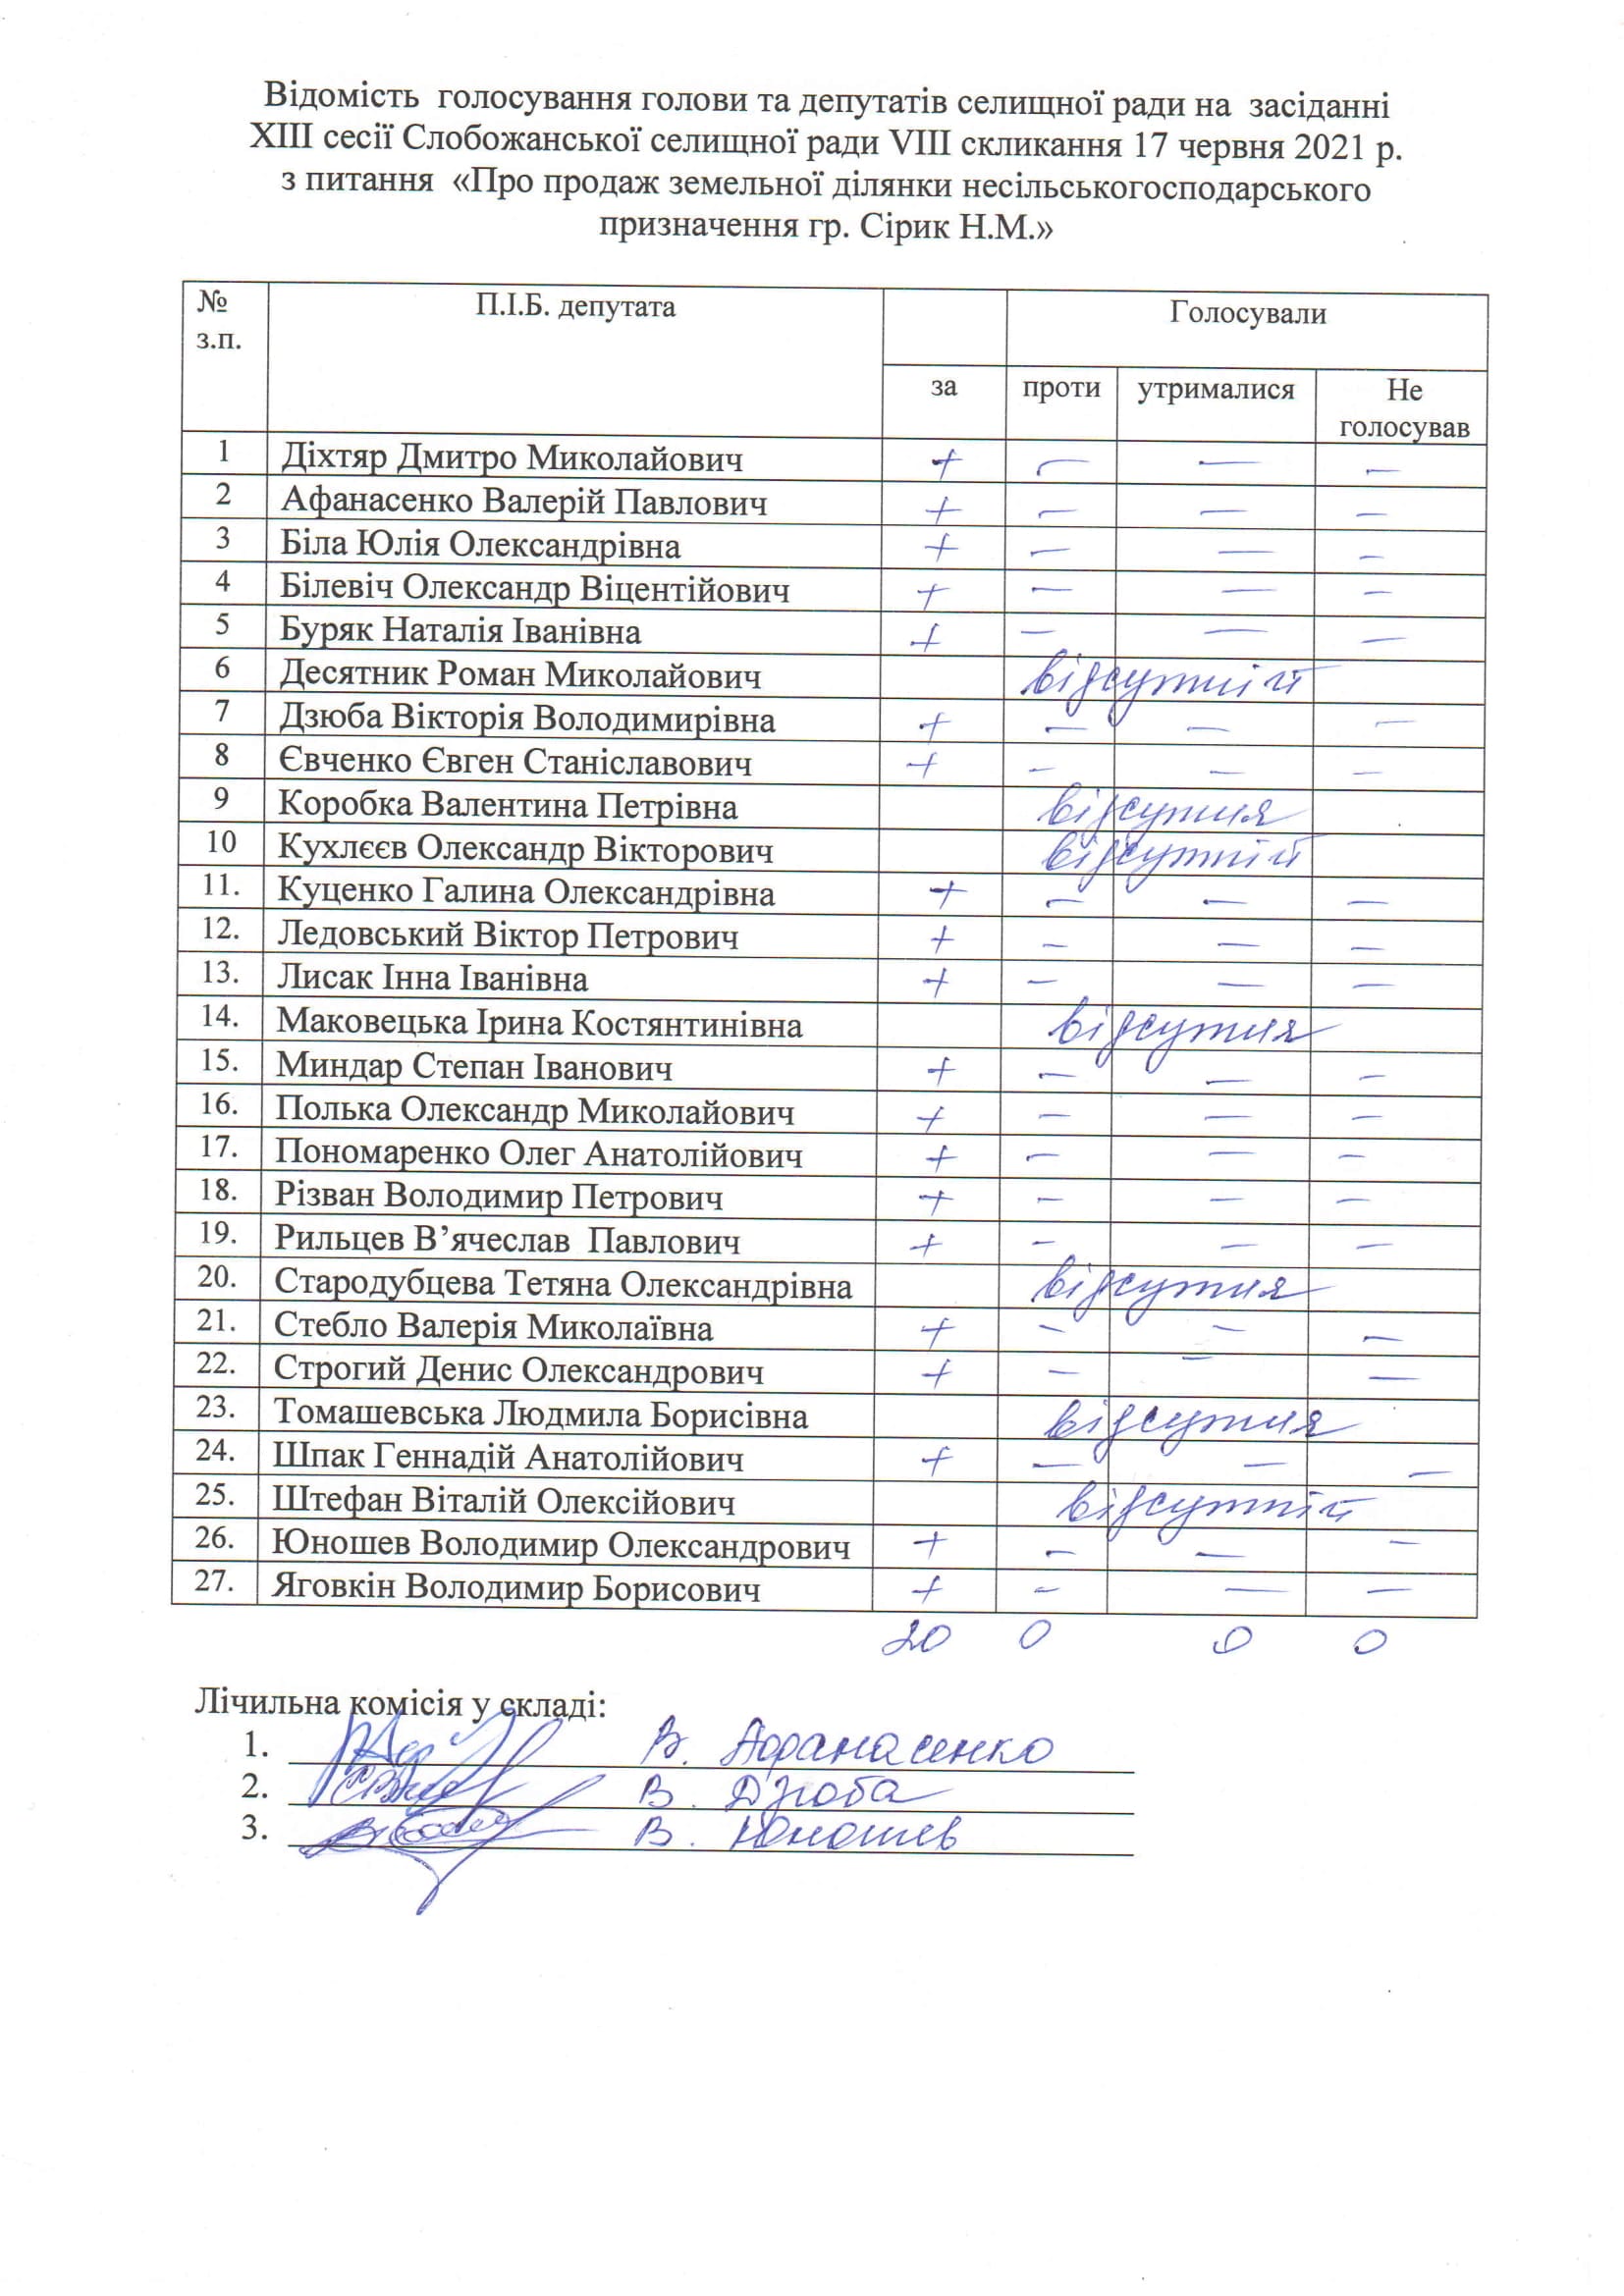 Відомість голосування голови та депутатів селищної ради на засіданні
ХІІІ сесії Слобожанської селищної ради VІІІ скликання 17 червня 2021 р.
з питання «Про продаж земельної ділянки несільськогосподарського
призначення гр. Сірик Н.М.»
№ з.п. П.І.Б. депутата Голосували
за проти утрималися Не голосував
1 Діхтяр Дмитро Миколайович + – – –
2 Афанасенко Валерій Павлович + – – –
3 Біла Юлія Олександрівна + – – –
4 Білевіч Олександр Віцентійович + – – –
5 Буряк Наталія Іванівна + – – –
6 Десятник Роман Миколайович відсутній
7 Дзюба Вікторія Володимирівна + – – –
8 Євченко Євген Станіславович + – – –
9 Коробка Валентина Петрівна відсутня
10 Кухлєєв Олександр Вікторович відсутній
11. Куценко Галина Олександрівна + – – –
12. Ледовський Віктор Петрович + – – –
13. Лисак Інна Іванівна + – – –
14. Маковецька Ірина Костянтинівна відсутня
15. Миндар Степан Іванович + – – –
16. Полька Олександр Миколайович + – – –
17. Пономаренко Олег Анатолійович + – – –
18. Різван Володимир Петрович + – – –
19. Рильцев В’ячеслав Павлович + – – –
20. Стародубцева Тетяна Олександрівна відсутня
21. Стебло Валерія Миколаївна + – – –
22. Строгий Денис Олександрович + – – –
23. Томашевська Людмила Борисівна відсутня
24. Шпак Геннадій Анатолійович + – – –
25. Штефан Віталій Олексійович відсутній
26. Юношев Володимир Олександрович + – – –
27. Яговкін Володимир Борисович + – – –
20 0 0 0
Лічильна комісія у складі:
1. В. Афанасенко
2. В. Дзюба
3. В. Юношев